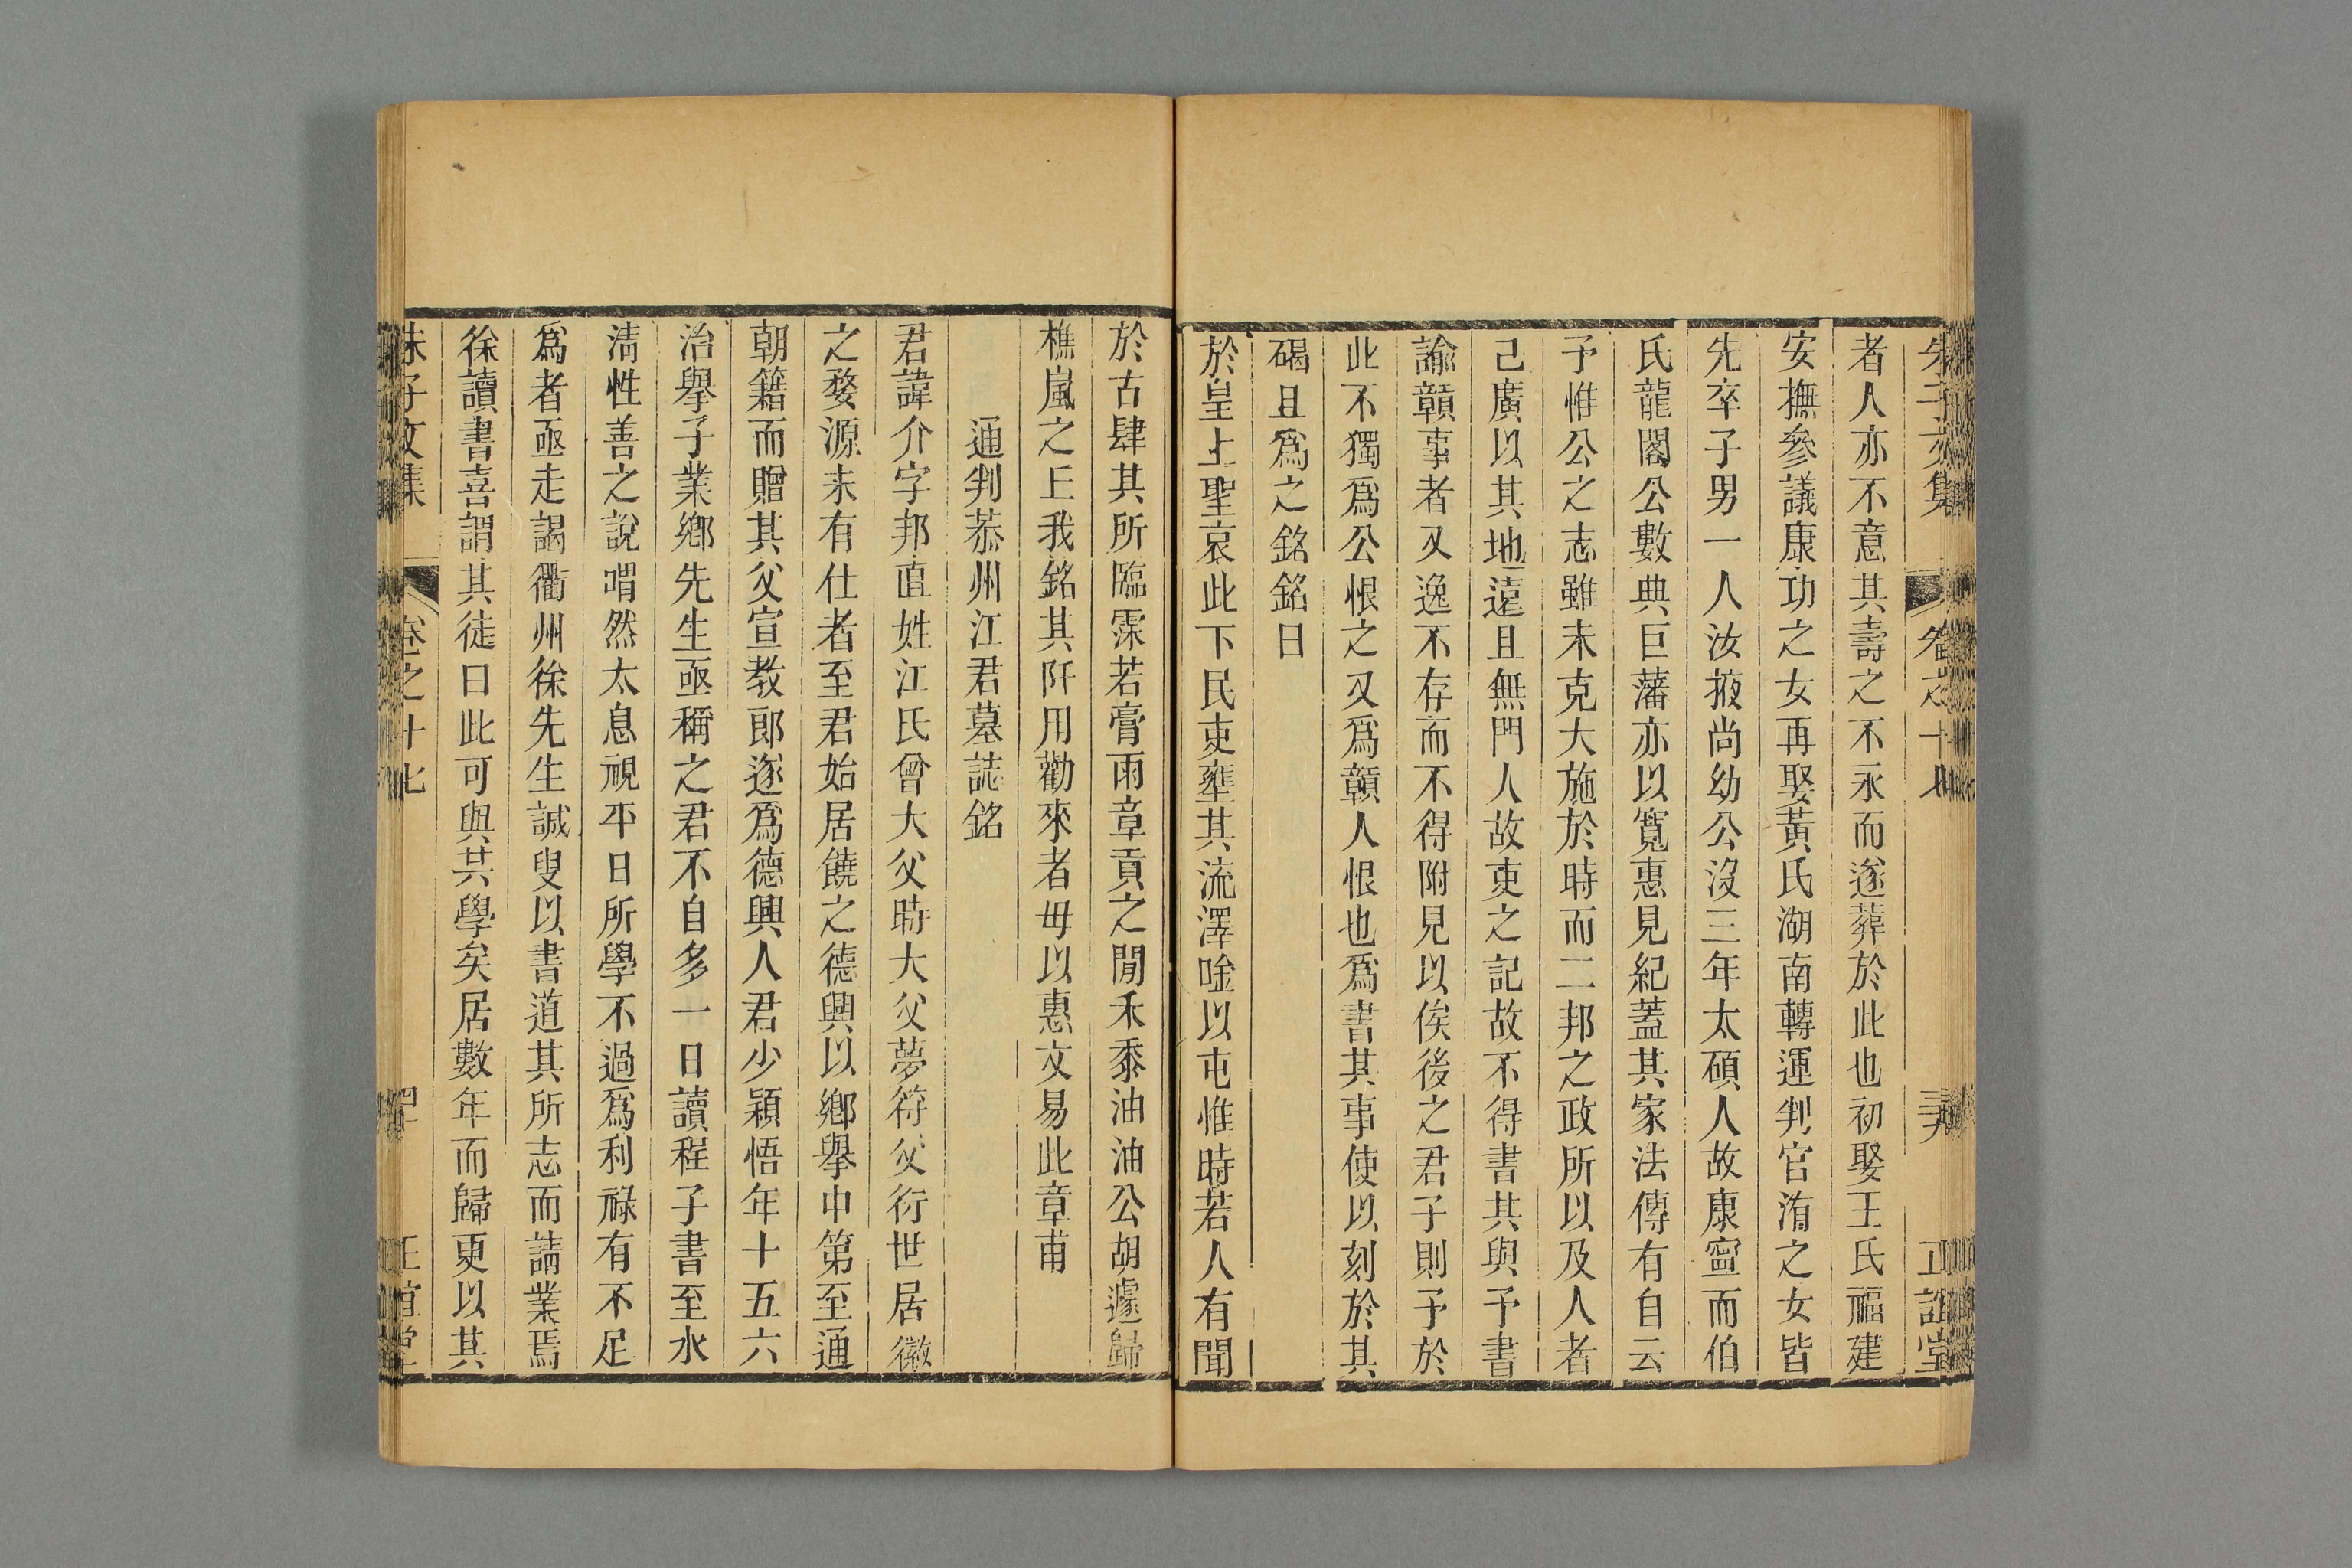 朱子文集 卷之十八 正誼堂
者人亦不意其壽之不永而遂葬於此也初娶王氏福建
安撫參議康功之女再娶黃氏湖南轉運判官洧之女皆
先卒子男一人汝掖尚幼公沒三年太碩人故康寧而伯
氏龍閣公數典巨藩亦以寬惠見紀蓋其家法傳有自云
予惟公之志雖未克大施於時而二邦之政所以及人者
己廣以其地遠且無門人故吏之記故不得書其與予書
諭贛事者又逸不存而不得附見以俟後之君子則予於
此不獨爲公恨之又爲贛人恨也爲書其事使以刻於其
碣且爲之銘銘曰
於皇上聖哀此下民吏壅其流澤唫以屯惟時若人有聞
於古肆其所臨霂若膏雨章貢之閒禾黍油油公胡遽歸
樵嵐之丘我銘其阡用勸來者毋以惠文易此章甫
通判恭州江君墓誌銘
君諱介字邦直姓江氏曾大父時大父夢符父衍世居徽
之婺源未有仕者至君始居饒之德興以鄉擧中第至通
朝籍而贈其父宣教郎遂爲德興人君少穎悟年十五六
治擧子業鄉先生亟稱之君不自多一日讀程子書至水
淸性善之說喟然太息視平日所學不過爲利祿有不足
爲者亟走謁衢州徐先生誠叟以書道其所志而請業焉
徐讀書喜謂其徒曰此可與共學矣居數年而歸更以其
朱子文集 卷之十七 四十 正誼堂